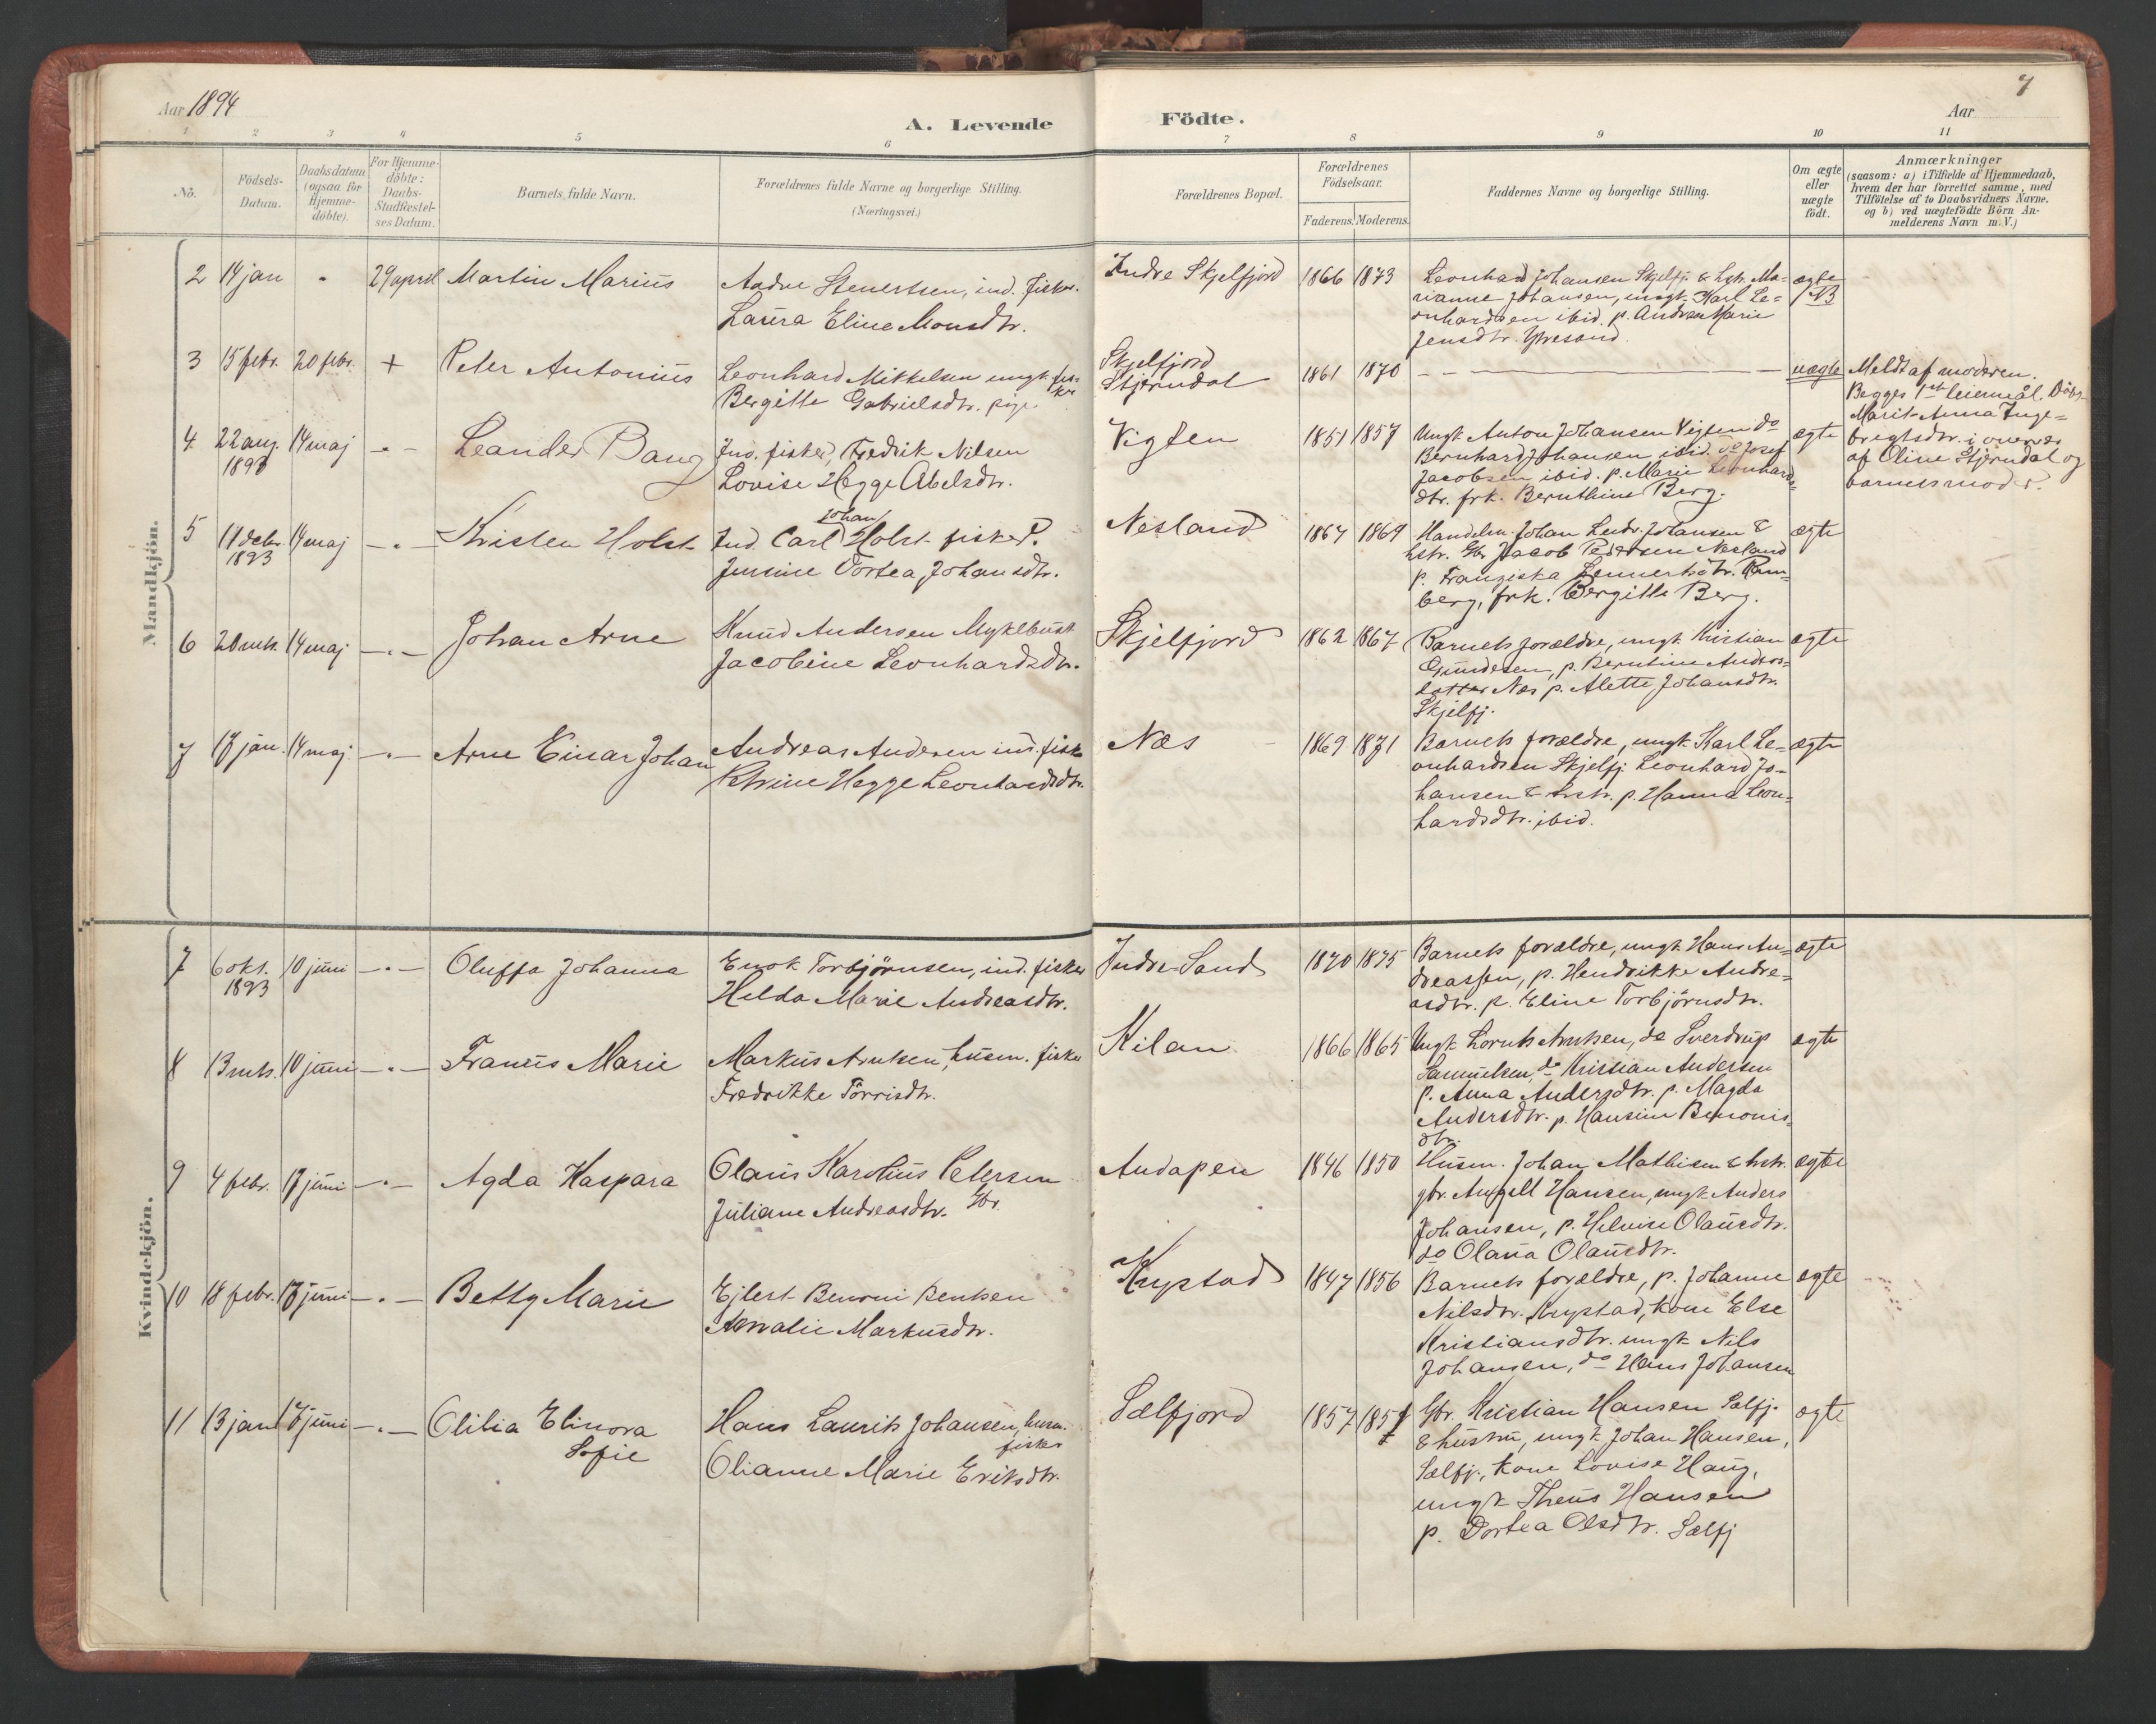 Aar 1894
A. Levende Födte.
7
Aar
1 2 3 4 5 6 7 8 9 10 11
No.
Födsels-Datum.
Daabsdatum (ogsaa for Hjemme-döbte).
For Hjemme-döbte: Daabs-Stadfæstel-ses Datum.
Barnets fulde Navn.
Forældrenes fulde Navne og borgerlige Stilling.
(Næringsvei.)
Forældrenes Bopæl.
Forældrenes Födselsaar.
Faderens. Moderens.
Faddernes Navne og borgerlige Stilling.
Om ægte eller uægte födt.
Anmærkninger
(saasom: a) i Tilfælde af Hjemmedaab,
hvem der har forrettet samme, med
Tilföielse af to Daabsvidners Navne.
og b) ved uægtefödte Börn An-
melderens Navn m. V.)
Mandkjön.
2 14 jan " 29 april Martin Marius
Andre Stenertsen, ind. fisker.
Laura Eline Monsdtr.
Indre Skjelfjord 1866 1873
Leonhard Johansen Skjelfj. & hstr. Ma-
rianne Johansen, ungk. Karl Le-
onhardsen ibid. p. Andrea Marie
Jensdtr. Ytresand
ægte
NB
3 15 febr. 20 febr. + Peter Antonius
Leonhard Mikkelsen ungk. fis-
ker
Bergitte Gabrielsdtr. pige.
Skjelfjord
Stjerndal 1861 1870
uægte
Meldt af moderen.
Begges 1ste leiermål. Döbt
Marit Anna Inge-
bregtsdtr. i overvær
af Oline Stjerndal og
barnets moder.
4 22 aug. 1893 14 maj - " - Leander Bang
Ind. fisker, Fredrik Nilsen
Lovise Hegge Abelsdtr.
Vigten 1851 1857
Ungk. Anton Johansen Vigten do
Bernhard Johansen ibid. do Josef
Jacobsen ibid. p. Marie Leonhards-
dtr. frk. Bernthine Berg.
ægte
5 11 decbr. 1893 14 maj - " - Kristen Holst
Ind. Carl Johan Holst fisker.
Jensine Dortea Johansdtr.
Nesland 1867 1869
Handelm. Johan Leudr. Johansen &
hstr. Gbr. Jacob Pedersen Nesland
p. Franziska Lennertsdtr. Ram-
berg, frk. Bergitte Berg.
ægte
6 20 mts. 14 maj - " - Johan Arne
Knud Andersen Myklebust
Jacobine Leonhardsdtr.
Skjelfjord 1862 1867
Barnets forældre, ungk. Kristian
Gundesen, p. Berntine Anders-
datter Næs p. Alette Johansdtr.
Skjelfj.
ægte
7 17 jan. 14 maj. - " - Arne Einar Johan
Andreas Andersen ind. fisker
Petrine Hegge Leonhardsdtr.
Næs 1869 1871
Barnets forældre, ungk. Karl Le-
onhardsen Skjelfj. Leonhard Jo-
hansen & hstr. p. Hanna Leon-
hardsdtr. ibid.
ægte
Kvindekjön.
7 6 okt. 1893 10 juni - " - Oluffa Johanna
Enok Torbjörnsen, ind. fisker
Hilda Marie Andreasdtr.
Indre Sand 1870 1875
Barnets forældre, ungk. Hans An-
dreassen, p. Hendrikke Andre-
asdtr. p. Eline Torbjörnsdtr.
ægte
8 13 mts. 10 juni - " - Franns Marie
Markus Arntsen, husm. fisker
Fredrikke Törrisdtr.
Kilan 1866 1865
Ungk. Lornts Arntsen, do Sverdrup
Samuelsen, do Kristian Andersen
p. Anna Andersdtr. p. Magda
Andersdtr. p. Hansine Benonis-
dtr.
ægte
9 4 febr. 17 juni - " - Agda Kaspara
Olaus Karolius Petersen
Juliane Andreasdtr. Gbr.
Andopen 1846 1850
Husm. Johan Mathisen & hstr.
gbr. Angell Hansen, ungk. Anders
Johansen, p. Helmine Olausdtr.
do Olava Olausdtr.
ægte
10 18 febr. 17 juni - " - Betty Marie
Ejlert Benoni Bentsen
Amalie Markusdtr.
Krystad 1847 1856
Barnets forældre, p. Johanne
Nilsdtr. Krystad, kone Else
Kristiansdtr. ungk. Nils
Johansen, do Hans Johansen
ægte
11 13 jan 17 juni - " - Olilia Elinora
Sofie
Hans Laurits Johansen, husm.
fisker
Olianne Marie Eriksdtr.
Sælfjord 1857 1857
Gbr. Kristian Hansen Sælfj.
& hustru, ungk. Johan Hansen,
Sælfj., kone Lovise Haug,
ungk. Theus Hansen
p. Dortea Olsdtr. Sælfj
ægte